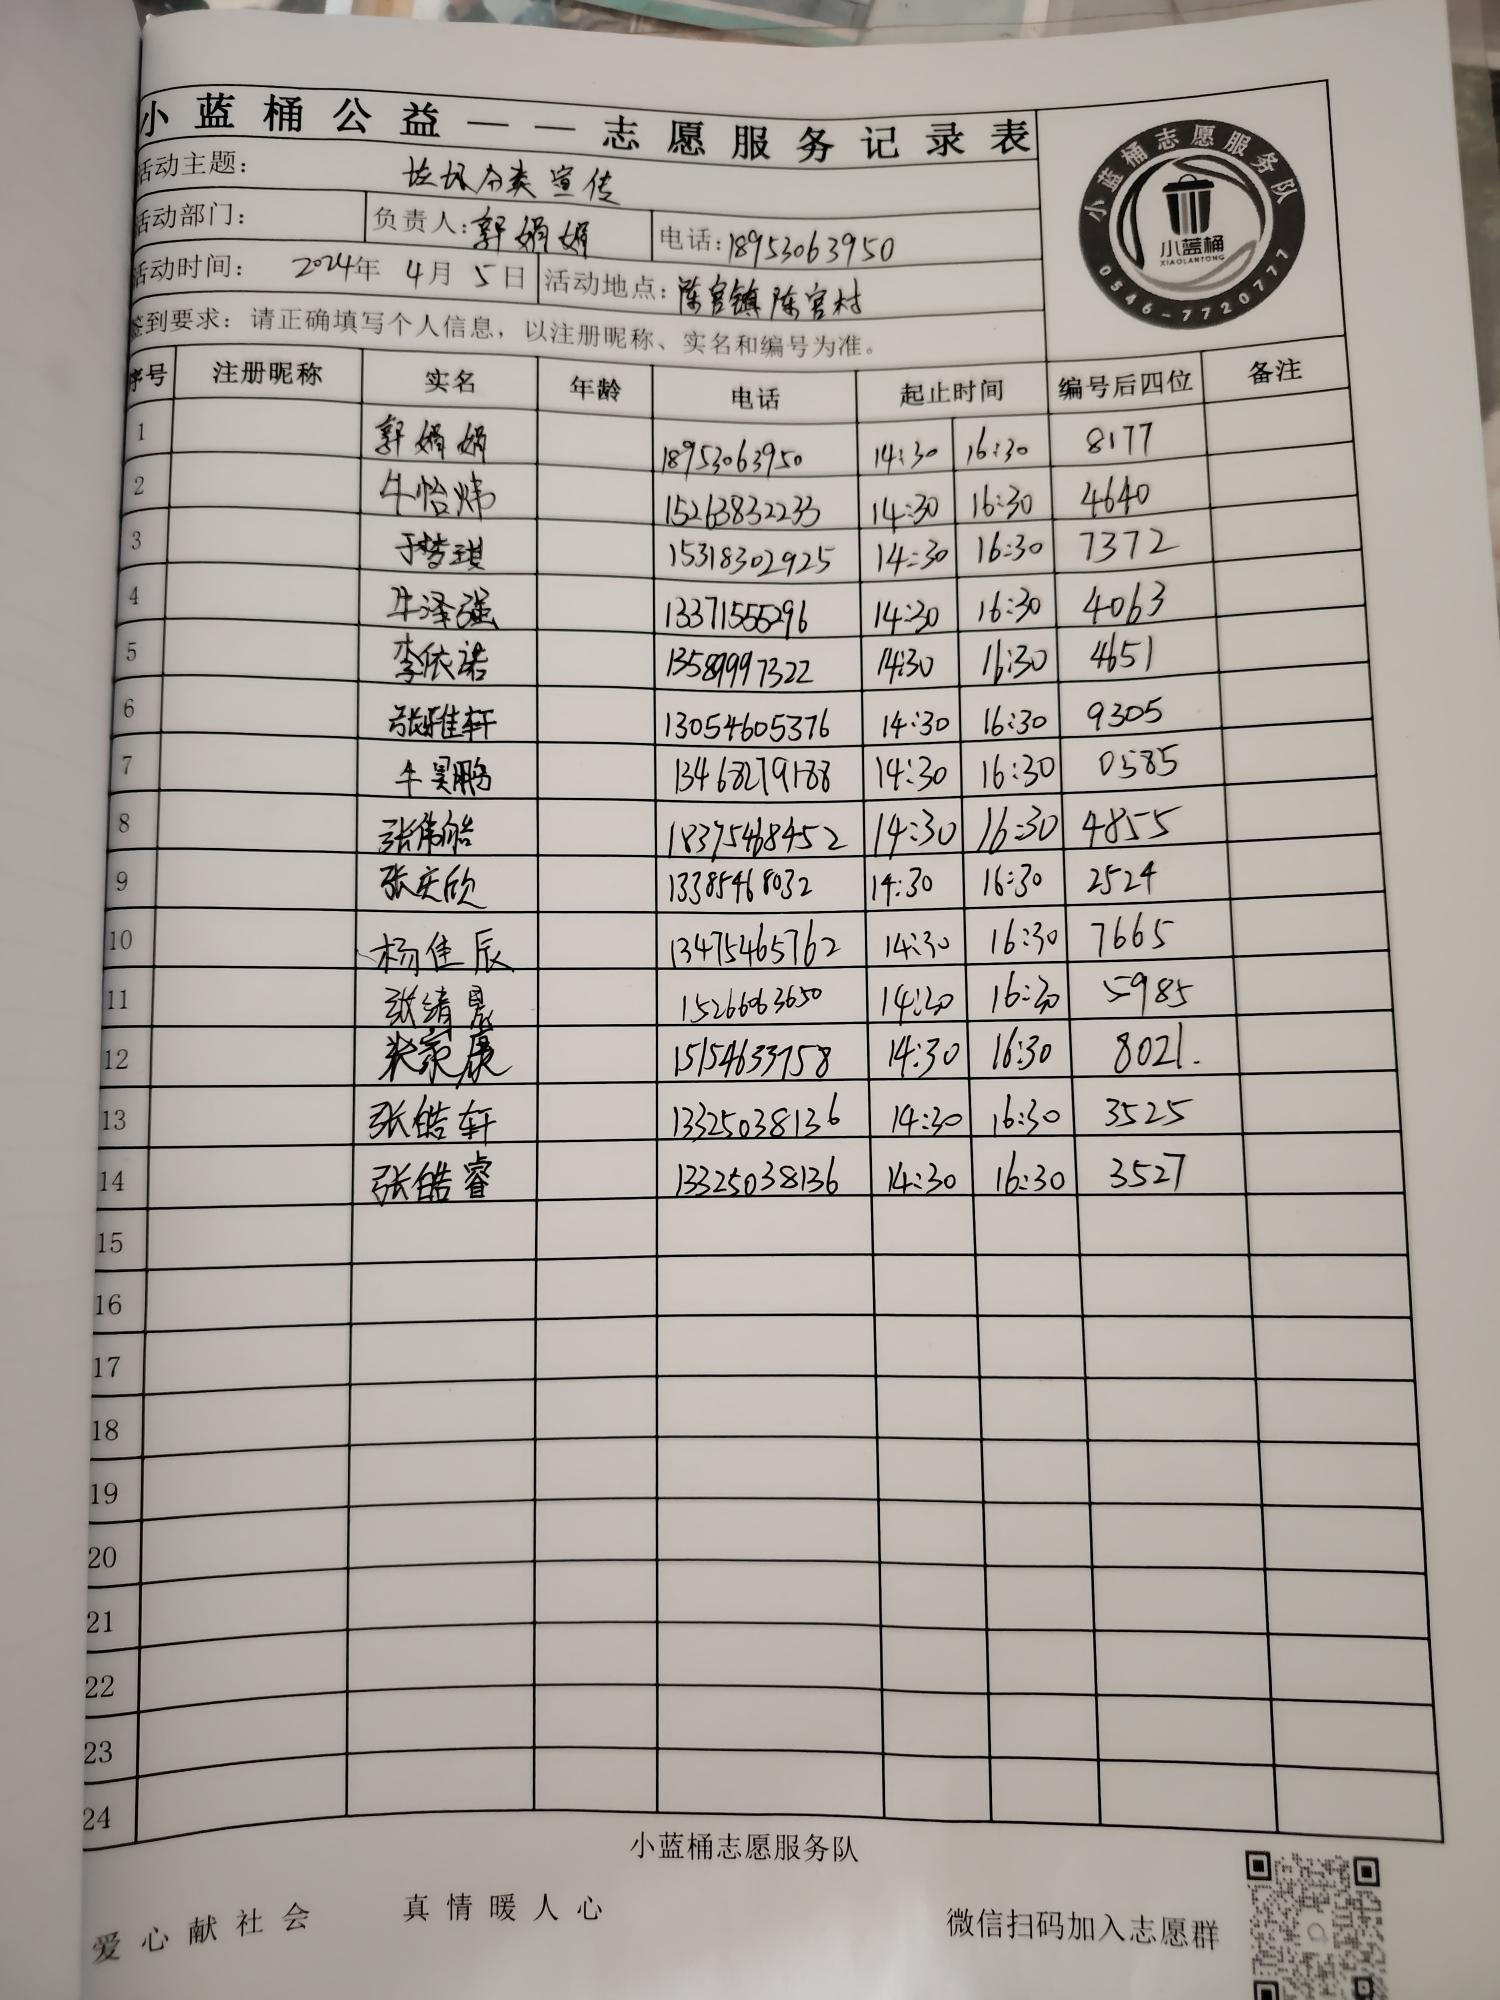 小蓝桶公益——志愿服务记录表
活动主题： 垃圾分类宣传
活动部门： 负责人：郭娟娟 电话：18953063950
活动时间： 2024年 4月 5日 活动地点：陈官镇陈官村
签到要求：请正确填写个人信息，以注册昵称、实名和编号为准。
小蓝桶志愿服务队
小蓝桶
XIAOLANTONG
0546-7720777
序号 注册昵称 实名 年龄 电话 起止时间 编号后四位 备注
1 郭娟娟 18953063950 14:30 16:30 8177
2 牛怡炜 15263832233 14:30 16:30 4640
3 于梦琪 15318302925 14:30 16:30 7372
4 牛泽强 13371555296 14:30 16:30 4063
5 李依诺 13589997322 14:30 16:30 4651
6 张雅轩 13054605376 14:30 16:30 9305
7 牛昊鹏 13468279188 14:30 16:30 0585
8 张伟皓 18375468452 14:30 16:30 4855
9 张庆欣 13385468032 14:30 16:30 2524
10 杨佳辰 13475465762 14:30 16:30 7665
11 张绪晨 15266063650 14:30 16:30 5985
12 家康 15154633758 14:30 16:30 8021.
13 张皓轩 13325038136 14:30 16:30 3525
14 张皓睿 13325038136 14:30 16:30 3527
15
16
17
18
19
20
21
22
23
24
小蓝桶志愿服务队
爱心献社会 真情暖人心 微信扫码加入志愿群